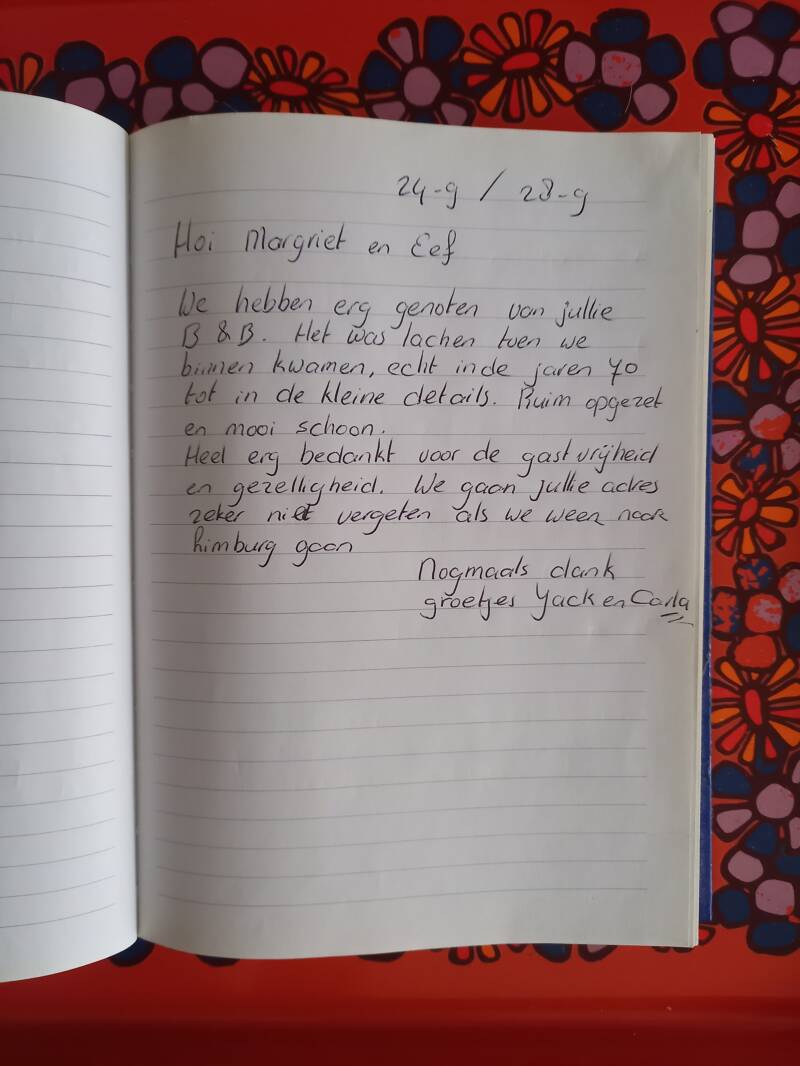 24-9 / 28-9
Hoi Margriet en Eef
We hebben erg genoten van jullie
B & B. Het was lachen toen we
binnen kwamen, echt in de jaren 70
tot in de kleine details. Ruim opgezet
en mooi schoon.
Heel erg bedankt voor de gastvrijheid
en gezelligheid. We gaan jullie adres
zeker niet vergeten als we weer naar
Limburg gaan
Nogmaals dank
groetjes Yack en Carla